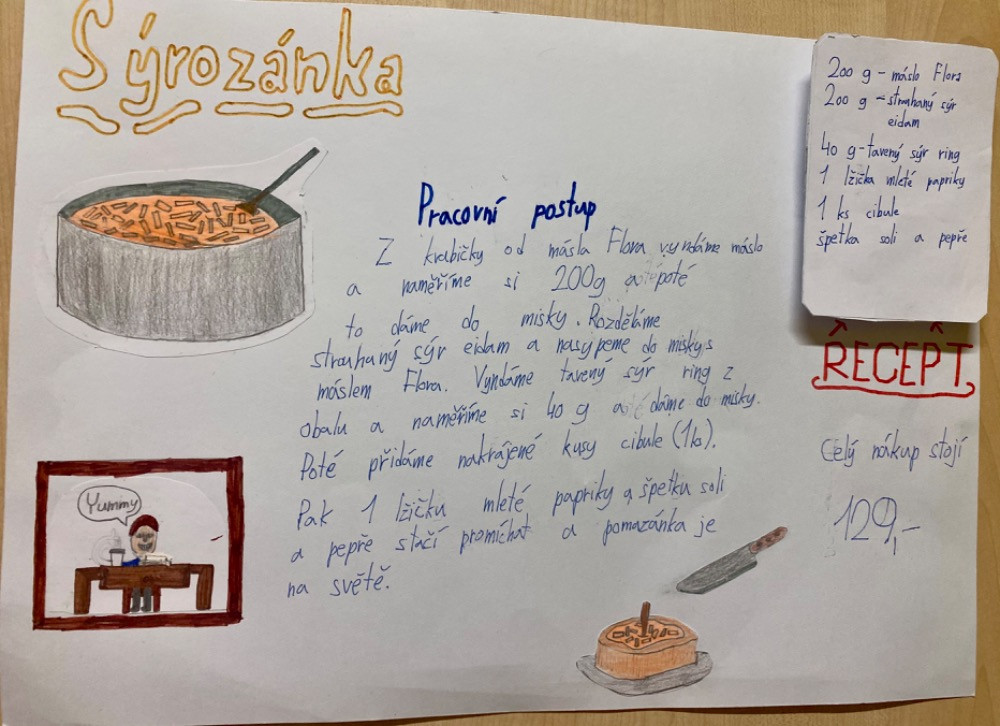 Sýrozánka
200 g - máslo Flora
200 g - strouhaný sýr
eidam
40 g - tavený sýr ring
1 lžička mleté papriky
1 ks cibule
špetka soli a pepře
RECEPT
Celý nákup stojí
129,-
Pracovní postup
Z krabičky od másla Flora vyndáme máslo
a naměříme si 200g poté
to dáme do misky. Rozděláme
strouhaný sýr eidam a nasypeme do misky s
máslem Flora. Vyndáme tavený sýr ring z
obalu a naměříme si 40 g a dáme do misky.
Poté přidáme nakrájené kusy cibule (1ks).
Pak 1 lžičku mleté papriky a špetku soli
a pepře stačí promíchat a pomazánka je
na světě.
Yummy